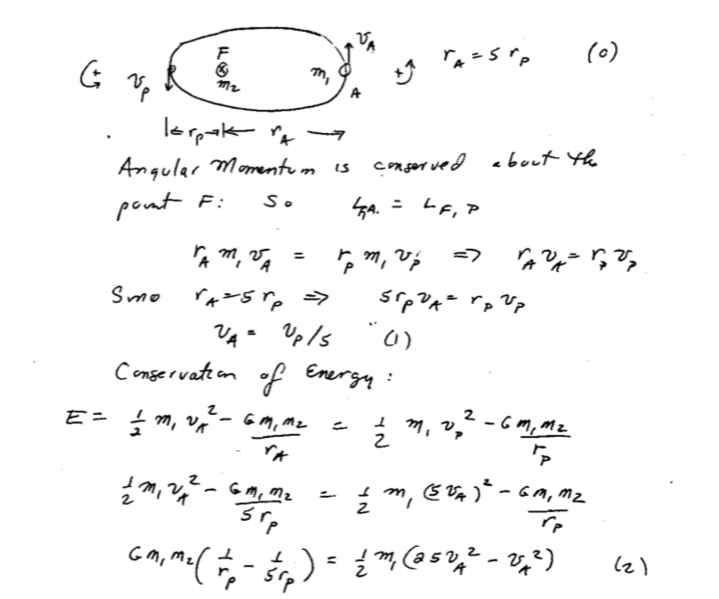 F
v_A
r_A = 5 r_p (0)
+ v_p m_2 m_1 A +
r_p r_A
Angular Momentum is conserved about the
point F: So L_{FA.} = L_{F,P}
r_A m_1 v_A = r_p m_1 v_p ⇒ r_A v_A = r_p v_p
r_A = 5 r_p ⇒ 5 r_p v_A = r_p v_p
v_A = v_p/5 (1)
Conservation of Energy:
E = \frac{1}{2} m_1 v_A^2 - \frac{G m_1 m_2}{r_A} = \frac{1}{2} m_1 v_p^2 - \frac{G m_1 m_2}{r_p}
\frac{1}{2} m_1 v_A^2 - \frac{G m_1 m_2}{5 r_p} = \frac{1}{2} m_1 (5 v_A)^2 - \frac{G m_1 m_2}{r_p}
G m_1 m_2 (\frac{1}{r_p} - \frac{1}{5 r_p}) = \frac{1}{2} m_1 (25 v_A^2 - v_A^2) (2)